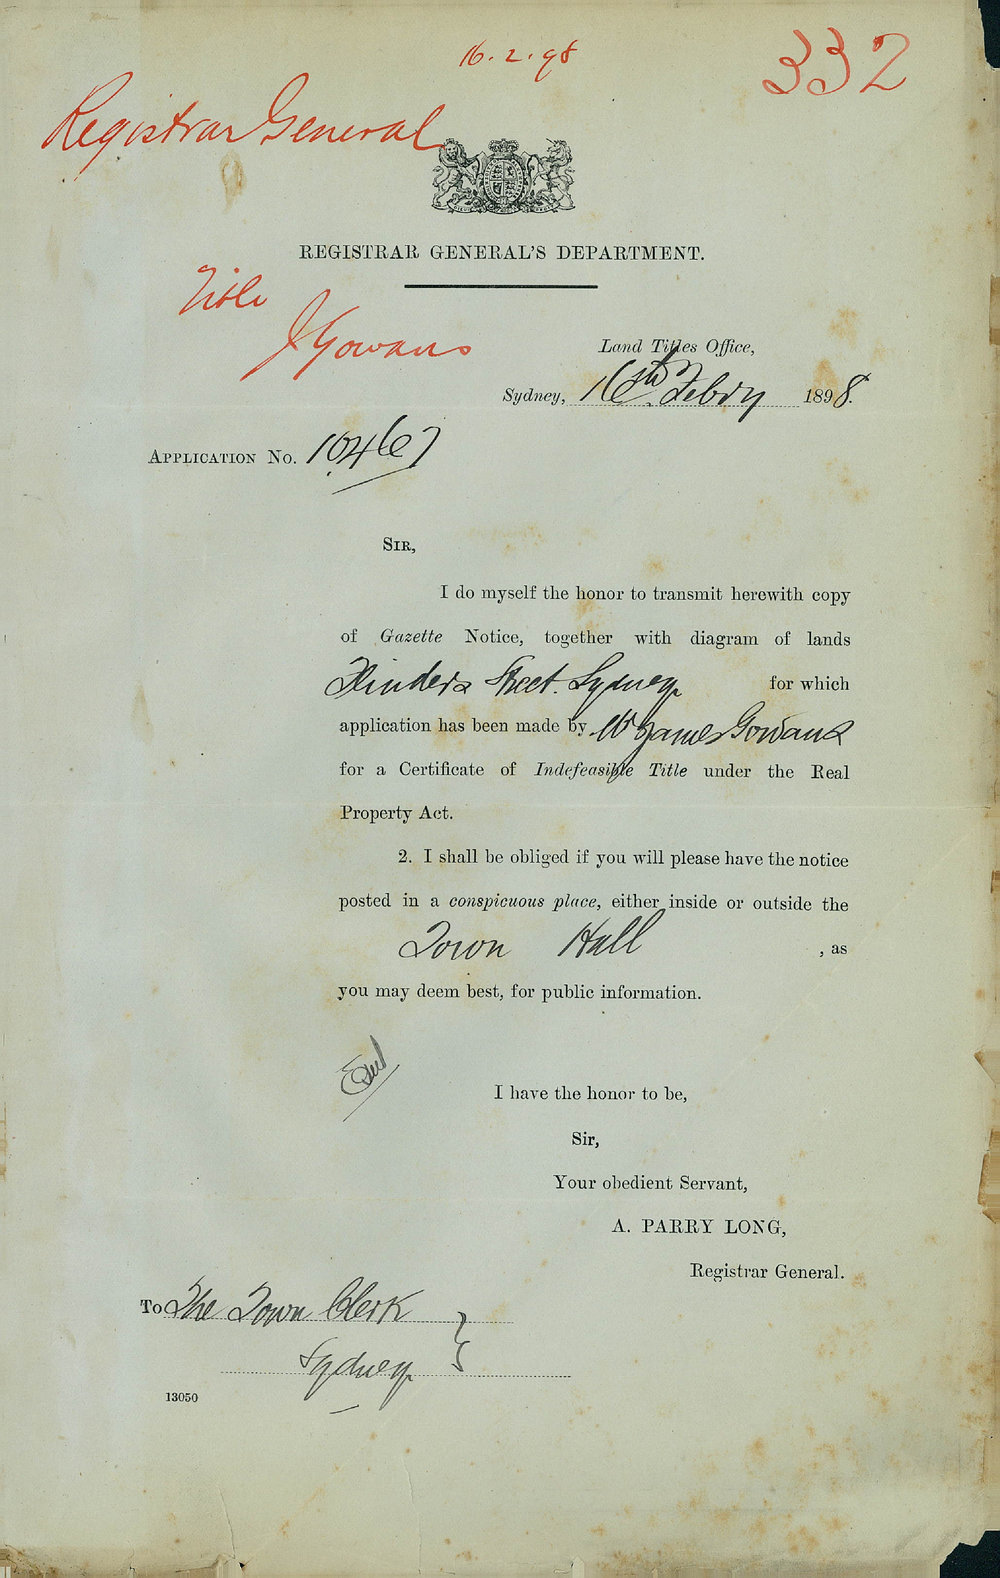 16.2.98
332
Registrar General
REGISTRAR GENERAL'S DEPARTMENT.
Title
J Gowans
Land Titles Office,
Sydney, 16th Febry 1898.
APPLICATION No. 10467
SIR,
I do myself the honor to transmit herewith copy
of Gazette Notice, together with diagram of lands
Flinders Street. Sydney for which
application has been made by Mr James Gowans
for a Certificate of Indefeasible Title under the Real
Property Act.
2. I shall be obliged if you will please have the notice
posted in a conspicuous place, either inside or outside the
Town Hall , as
you may deem best, for public information.
I have the honor to be,
Sir,
Your obedient Servant,
A. PARRY LONG,
Registrar General.
To The Town Clerk
Sydney
13050